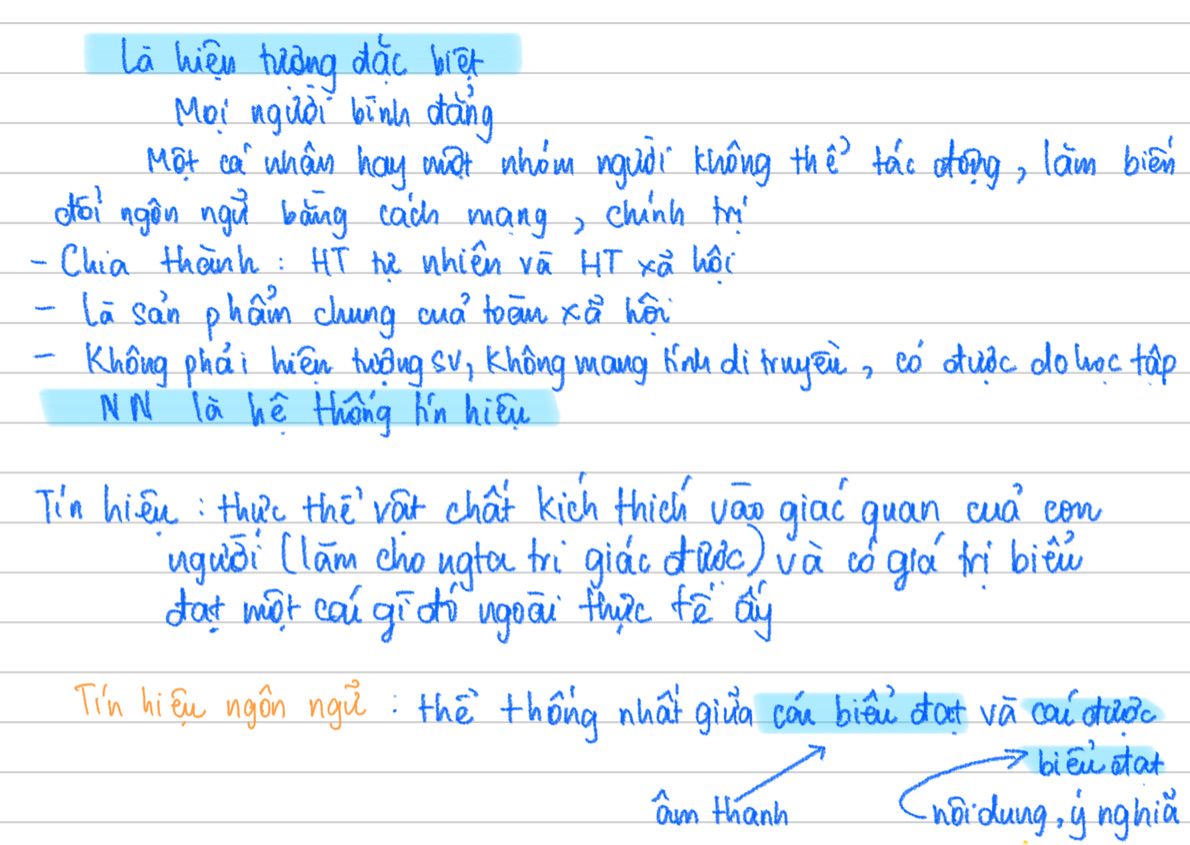 Là hiện tượng đặc biệt
Mọi người bình đẳng
Một cá nhân hay một nhóm người không thể tác động, làm biến
đổi ngôn ngữ bằng cách mạng, chính trị
- Chia thành : HT tự nhiên và HT xã hội
- Là sản phẩm chung cuả toàn xã hội
- Không phải hiện tượng SV, không mang tính di truyền, có được do học tập
NN là hệ thống tín hiệu
Tín hiệu : thực thể vật chất kích thích vào giác quan cuả con
người (làm cho ngta tri giác được) và có giá trị biểu
đạt một cái gì đó ngoài thực tế ấy
Tín hiệu ngôn ngữ : thể thống nhất giữa cái biểu đạt và cái được
biểu đạt
âm thanh nội dung, ý nghiã